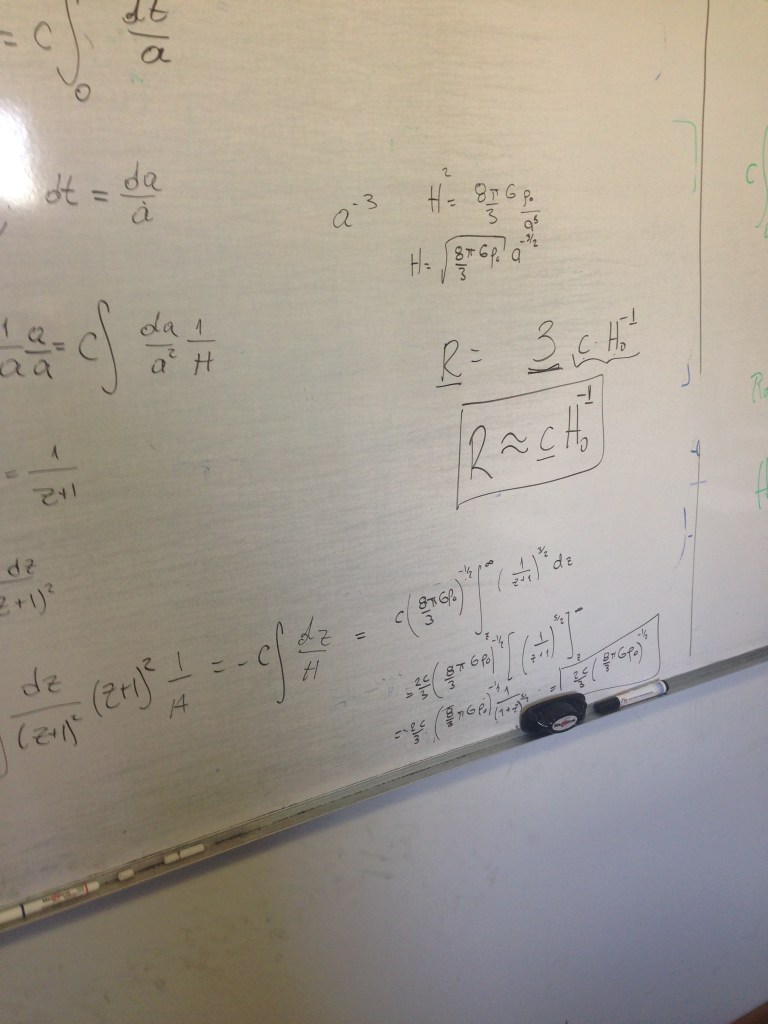 = c ∫₀ dt/a
dt = da/ȧ
a⁻³ H² = 8π/3 G ρ₀/a³
H = √(8/3 πGρ₀) a^(-3/2)
1/a a/ȧ = c ∫ da/a² 1/H
R = 3 c·H₀⁻¹
R ≈ c H₀⁻¹
= 1/(z+1)
dz/(z+1)²
dz/(z+1)² (z+1)² 1/H = -c ∫ dz/H = c (8/3 πGρ₀)^(-1/2) ∫_z^∞ (1/(z+1))^(3/2) dz
= 2c/3 (8/3 πGρ₀)^(-1/2) [(1/(z+1))^(5/2)]_z^∞
= -2c/3 (8/3 πGρ₀)^(-1/2) 1/(1+z) = 2c/3 (8/3 πGρ₀)^(-1/2)